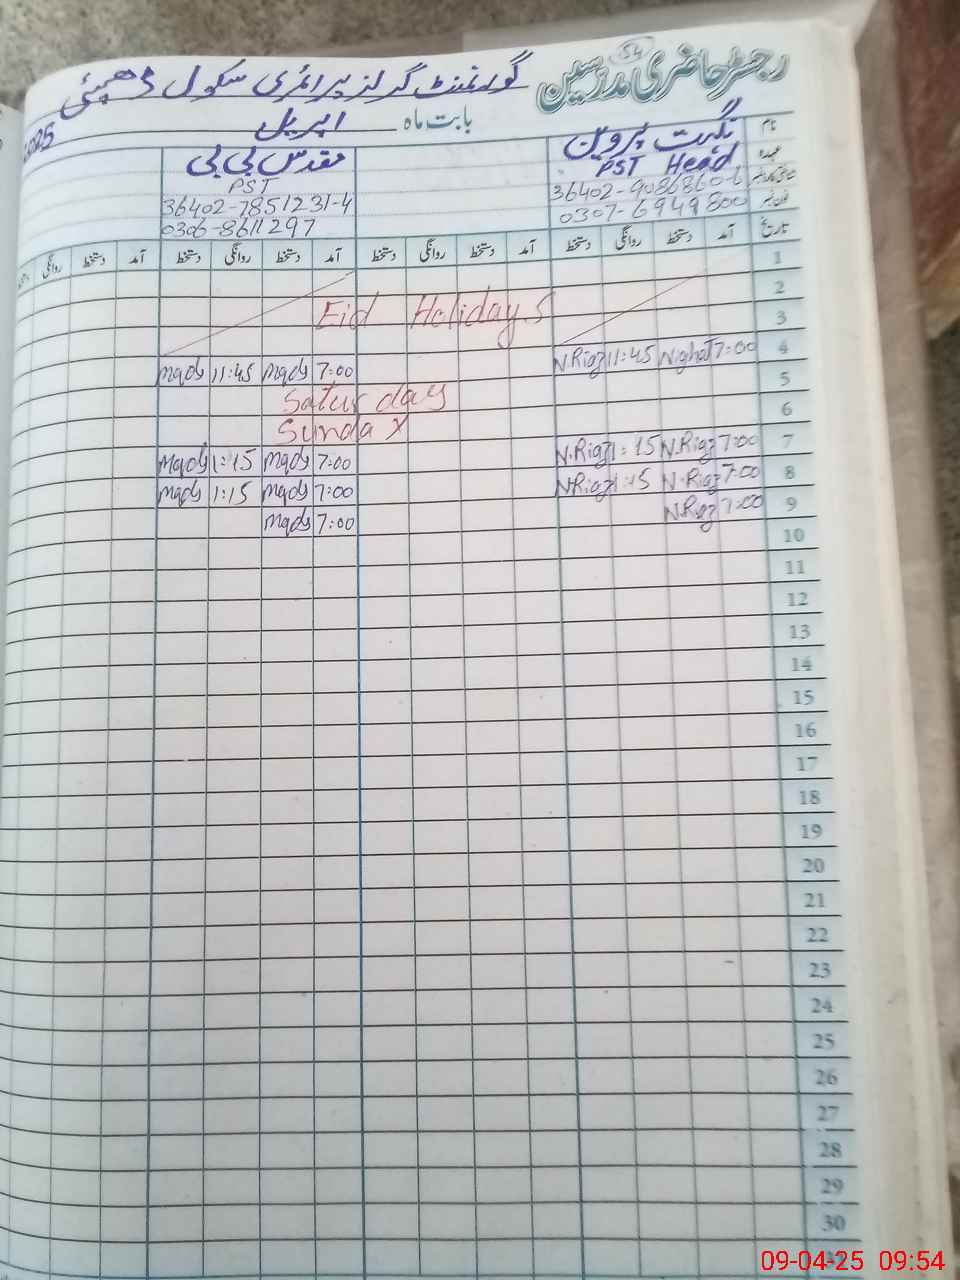 رجسٹر حاضری مدرسین
54
گورنمنٹ گرلز پرائمری سکول
بابت ماہ اپریل 2025
نام نگہت پروین مقدس بی بی
عہدہ PST Head PST
36402-9086860-6 36402-7851231-4
0307-6949800 0306-8611297
تاریخ آمد دستخط روانگی دستخط آمد دستخط روانگی دستخط آمد دستخط روانگی دستخط آمد دستخط روانگی
1
2
Eid Holidays
3
4 7:00 Nighat 11:45 N.Riaz 7:00 Mqds 11:45 Mqds
5 Saturday
6 Sunday
7 7:00 N.Riaz 1:15 N.Riaz 7:00 Mqds 1:15 Mqds
8 7:00 N.Riaz 1:15 N.Riaz 7:00 Mqds 1:15 Mqds
9 7:00 N.Riaz 7:00 Mqds
10
11
12
13
14
15
16
17
18
19
20
21
22
23
24
25
26
27
28
29
30
09-04-25 09:54